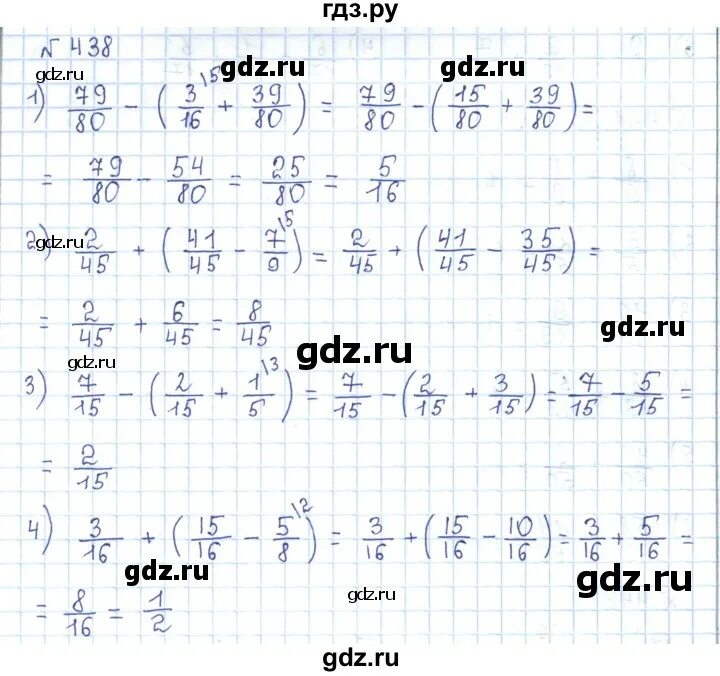 гдз.ру
№ 438
gdz.ru gdz.ru gdz.ru
1) 79/80 - (3/16 \5 + 39/80) = 79/80 - (15/80 + 39/80) =
= 79/80 - 54/80 = 25/80 = 5/16
gdz.ru
2) 2/45 + (41/45 - 7/9 \5) = 2/45 + (41/45 - 35/45) =
= 2/45 + 6/45 = 8/45
gdz.ru
gdz.ru gdz.ru
3) 7/15 - (2/15 + 1/5 \3) = 7/15 - (2/15 + 3/15) = 7/15 - 5/15 =
= 2/15
4) 3/16 + (15/16 - 5/8 \2) = 3/16 + (15/16 - 10/16) = 3/16 + 5/16 =
gdz.ru gdz.ru gdz.ru
= 8/16 = 1/2
gdz.ru